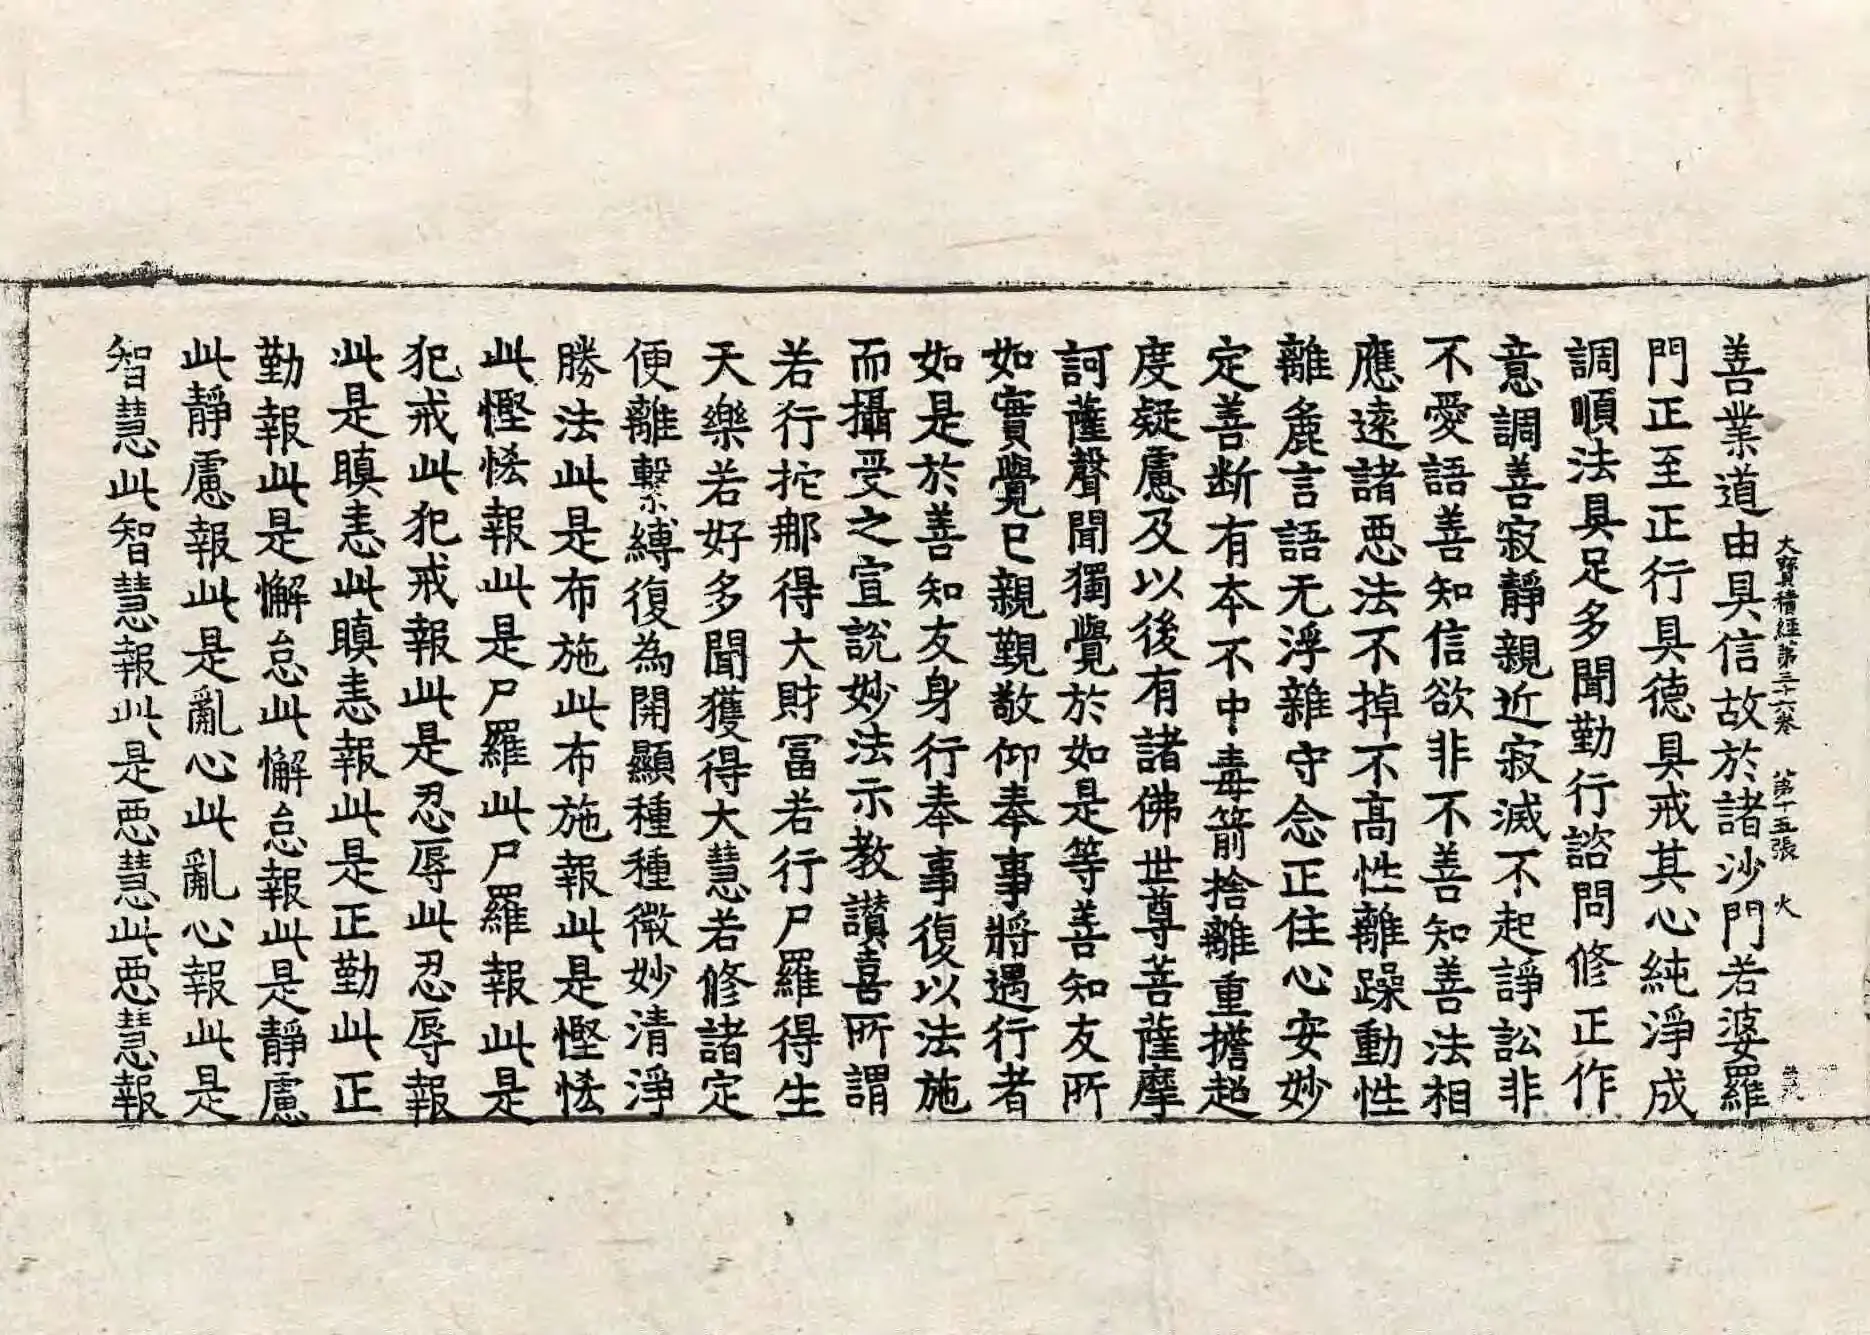 大寶積經第三十六卷 第十五張 火
善業道由具信故於諸沙門若婆羅
門正至正行具德具戒其心純淨成
調順法具足多聞勤行諮問修正作
意調善寂靜親近寂滅不起諍訟非
不愛語善知信欲非不善知善法相
應遠諸惡法不掉不高性離躁動性
離麁言語无浮雜守念正住心安妙
定善斷有本不中毒箭捨離重擔超
度疑慮及以後有諸佛世尊菩薩摩
訶薩聲聞獨覺於如是等善知友所
如實覺已親覲敬仰奉事將遇行者
如是於善知友身行奉事復以法施
而攝受之宣說妙法示教讚喜所謂
若行柁那得大財冨若行尸羅得生
天樂若好多聞獲得大慧若修諸定
便離繫縛復為開顯種種微妙清淨
勝法此是布施此布施報此是慳悋
此慳悋報此是尸羅此尸羅報此是
犯戒此犯戒報此是忍辱此忍辱報
此是瞋恚此瞋恚報此是正勤此正
勤報此是懈怠此懈怠報此是靜慮
此靜慮報此是亂心此亂心報此是
智慧此智慧報此是惡慧此惡慧報